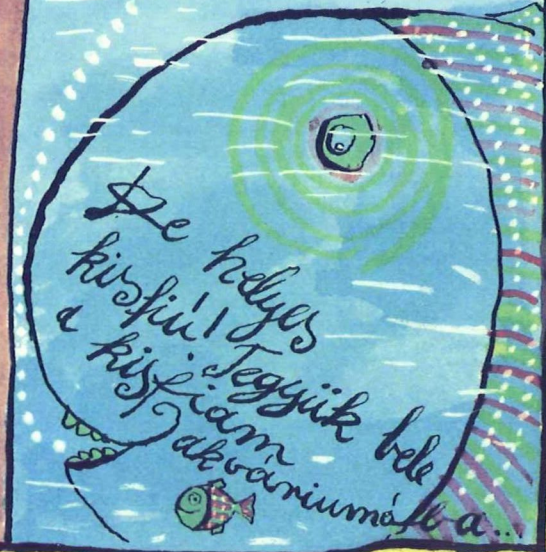 De helyes
kisfiú! Tegyük bele
a kisfiam
akváriumába...